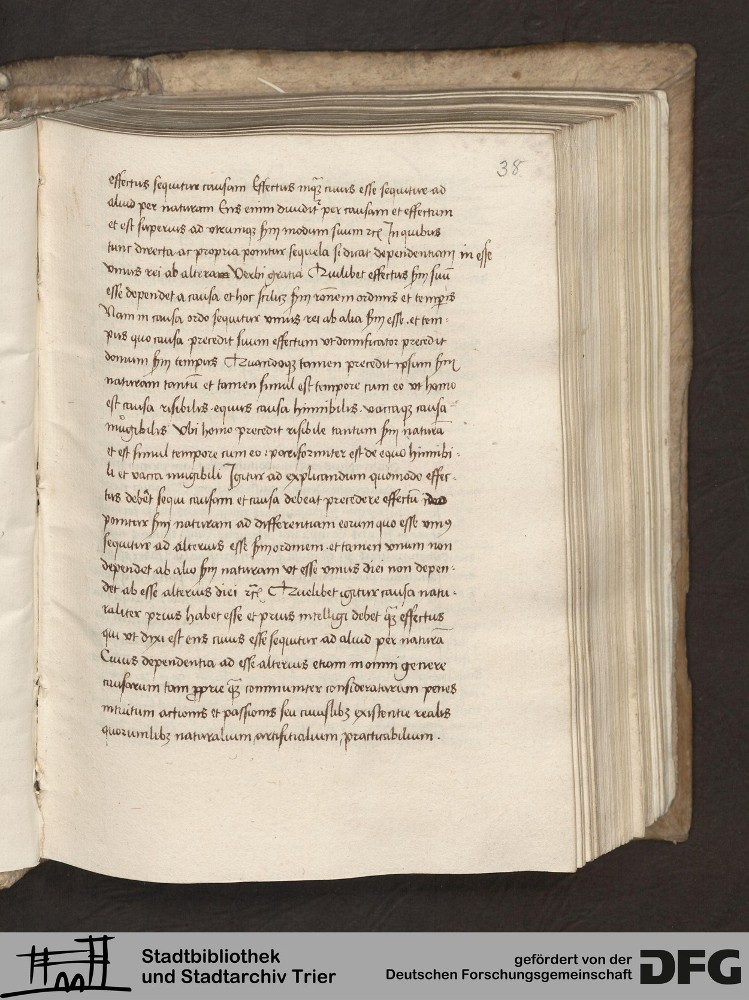 38
effectus sequitur causam Effectus inqꝫ cuius esse sequitur ad
aliud per naturam Ens enim diuiditʳ per causam et effectum
et est superius ad utrumqꝫ sm̄ modum suum ⁊cꝭ In quibus
tunc directa ac propria ponitur sequela si dicat dependentiam in esse
vnius rei ab altera Verbi gratia Quilibet effectus sm̄ suū
esse dependet a causa et hoc scilicꝫ sm̄ rōnem ordinis et temporis
Nam in causa ordo sequitur vnius rei ab alia sm̄ esse . et tem-
pus quo causa precedit suum effectum vt domificator precedit
domum sm̄ tempus Quandoqꝫ tamen precedit ipsum sm̄
naturam tantū et tamen simul est tempore cum eo vt homo
est causa risibilis . equus causa hinnibilis . vaccaqꝫ causa
mugibilis Vbi homo precedit risibile tantum sm̄ naturā
et est simul tempore cum eo : pariformiter est de equo hinnibi-
li et vacca mugibili Igitur ad explicandum quomodo effec-
tus debet sequi causam et causa debeat precedere effectū
ponitur sm̄ naturam ad differentiam eorum quo esse vniꝰ
sequitur ad alterius esse sm̄ ordinem . et tamen vnum non
dependet ab alio sm̄ naturam vt esse vnius diei non depen-
det ab esse alterius diei ⁊cꝭ Quelibet igitur causa natu-
raliter prius habet esse et prius intelligi debet qꝫ effectus
qui vt dixi est ens cuius esse sequitur ad aliud per naturā
Cuius dependentia ad esse alterius etiam in omni genere
causarum tam ꝓprie qꝫ communiter consideratarum penes
intuitum actionis et passionis seu cuiuslibꝫ existentie realis
quorumlibꝫ naturalium / artifitialium / practicabilium .
Stadtbibliothek
und Stadtarchiv Trier
gefördert von der
Deutschen Forschungsgemeinschaft
DFG